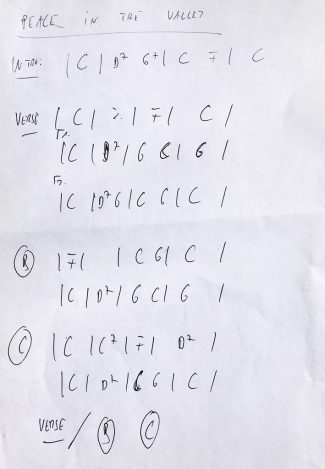 PEACE IN THE VALLEY
INTRO: | C | D7 G7 | C F | C
VERSE | C | ٪ | F | C |
1x. | C | D7 | G C | G |
2x. | C | D7 G | C G | C |
(B) | F | | C G | C |
| C | D7 | G C | G |
(C) | C | C7 | F | D7 |
| C | D7 | C G | C |
VERSE / (B) (C)